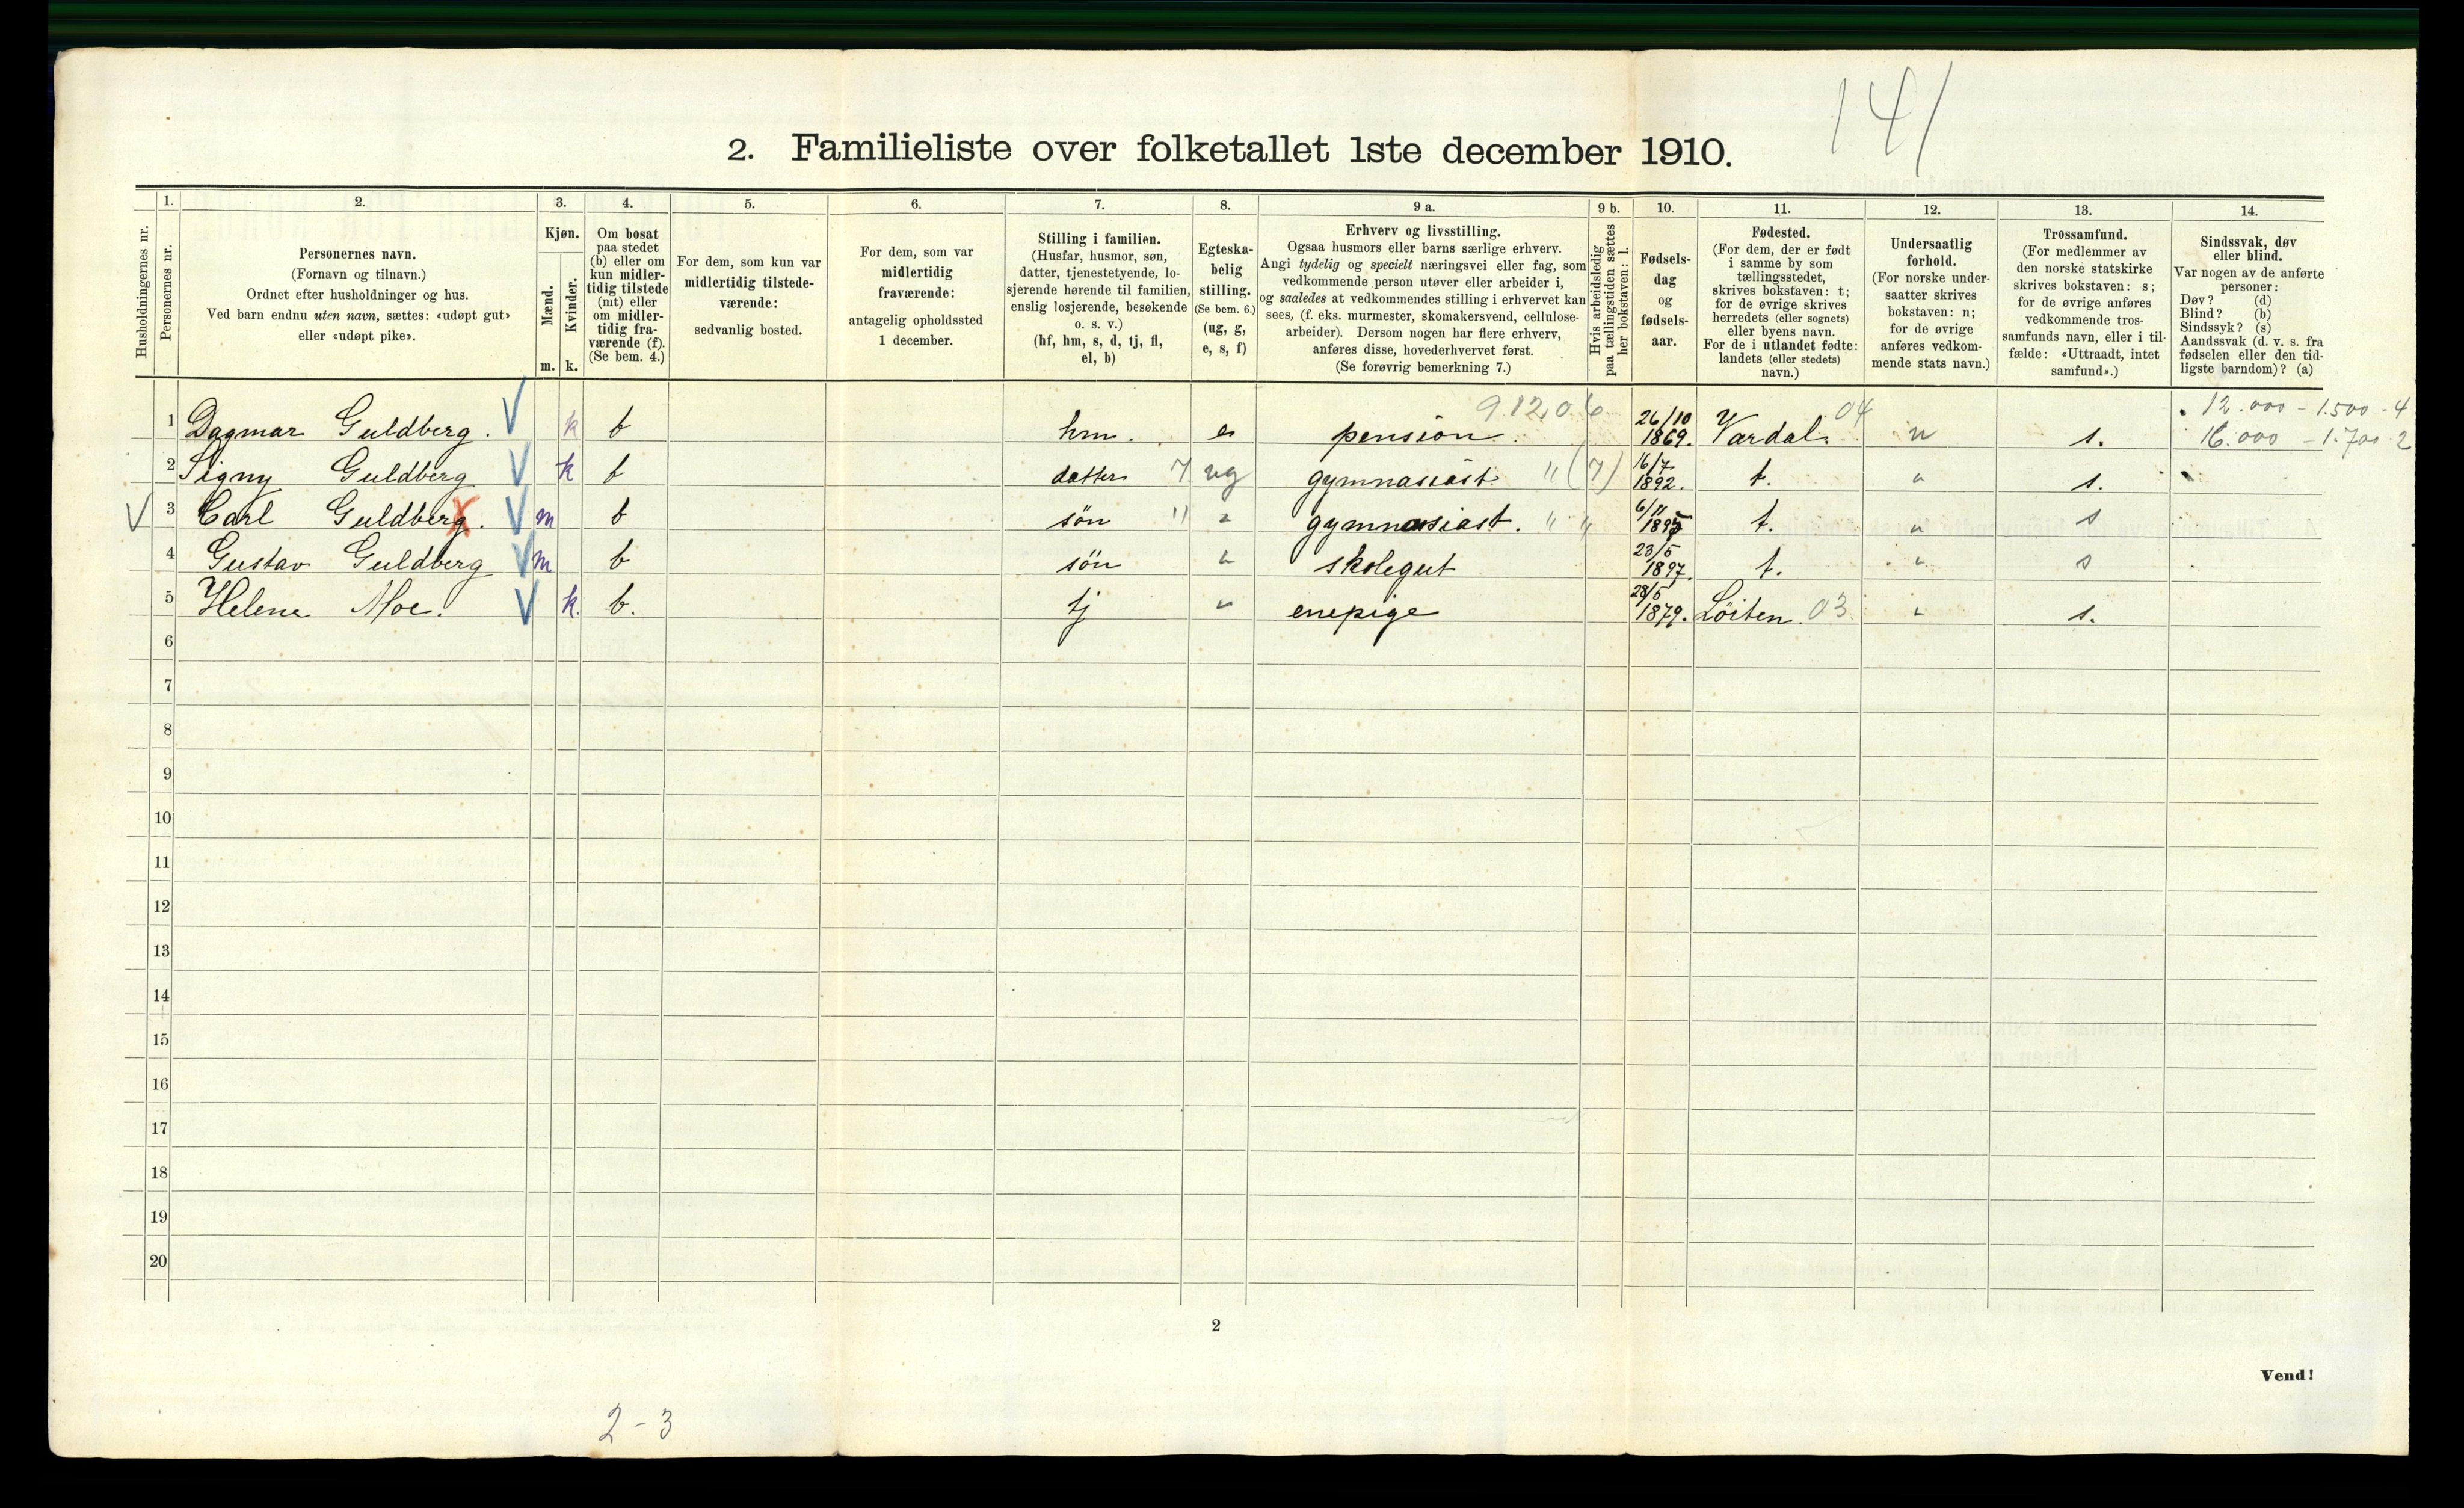 141
2. Familieliste over folketallet 1ste december 1910.
Husholdningernes nr.
1.
Personernes nr.
2.
Personernes navn.
(Fornavn og tilnavn.)
Ordnet efter husholdninger og hus.
Ved barn endnu uten navn, sættes: «udøpt gut»
eller «udøpt pike».
3.
Kjøn.
Mænd.
Kvinder.
m. k.
4.
Om bosat
paa stedet
(b) eller om
kun midler-
tidig tilstede
(mt) eller
om midler-
tidig fra-
værende (f).
(Se bem. 4.)
5.
For dem, som kun var
midlertidig tilstede-
værende:
sedvanlig bosted.
6.
For dem, som var
midlertidig
fraværende:
antagelig opholdssted
1 december.
7.
Stilling i familien.
(Husfar, husmor, søn,
datter, tjenestetyende, lo-
sjerende hørende til familien,
enslig losjerende, besøkende
o. s. v.)
(hf, hm, s, d, tj, fl,
el, b)
8.
Egteska-
belig
stilling.
(Se bem. 6.)
(ug, g,
e, s, f)
9 a.
Erhverv og livsstilling.
Ogsaa husmors eller barns særlige erhverv.
Angi tydelig og specielt næringsvei eller fag, som
vedkommende person utøver eller arbeider i,
og saaledes at vedkommendes stilling i erhvervet kan
sees, (f. eks. murmester, skomakersvend, cellulose-
arbeider). Dersom nogen har flere erhverv,
anføres disse, hovederhvervet først.
(Se forøvrig bemerkning 7.)
9 b.
Hvis arbeidsledig
paa tællingstiden sættes
her bokstaven: l.
10.
Fødsels-
dag
og
fødsels-
aar.
11.
Fødested.
(For dem, der er født
i samme by som
tællingsstedet,
skrives bokstaven: t;
for de øvrige skrives
herredets (eller sognets)
eller byens navn.
For de i utlandet fødte:
landets (eller stedets)
navn.)
12.
Undersaatlig
forhold.
(For norske under-
saatter skrives
bokstaven: n;
for de øvrige
anføres vedkom-
mende stats navn.)
13.
Trossamfund.
(For medlemmer av
den norske statskirke
skrives bokstaven: s;
for de øvrige anføres
vedkommende tros-
samfunds navn, eller i til-
fælde: «Uttraadt, intet
samfund».)
14.
Sindssvak, døv
eller blind.
Var nogen av de anførte
personer:
Døv? (d)
Blind? (b)
Sindssyk? (s)
Aandssvak (d. v. s. fra
fødselen eller den tid-
ligste barndom)? (a)
1 Dagmar Guldberg. k b hm. e pension. 91206 26/10 1869. Vardal. 04 n s. 12.000 - 1.500 - 4
16.000 - 1.700 2
2 Signy Guldberg k b datter 7 ug gymnasiast " (7) 16/7 1892. t. " s.
3 Carl Guldberg. m b søn " " gymnasiast. " " 6/11 1895 t. " s
4 Gustav Guldberg m b søn " skolegut 23/5 1897. t. " s
5 Helene Moe. k. b. tj " enepige 28/5 1879. Löiten. 03 " s.
6
7
8
9
10
11
12
13
14
15
16
17
18
19
20
2
Vend!
2-3